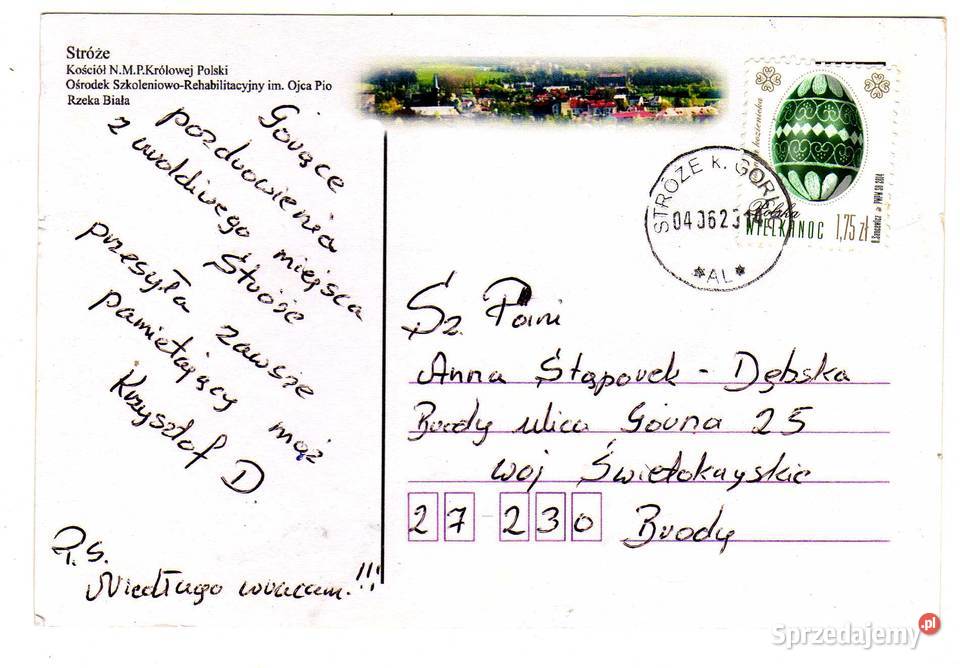 Stróże
Kościół N.M.P.Królowej Polski
Ośrodek Szkoleniowo-Rehabilitacyjny im. Ojca Pio
Rzeka Biała
Gorące
pozdrowienia
z urokliwego miejsca
Stróże
przesyła zawsze
pamiętający mąż
Krzysztof D.
P.S.
Niedługo wracam.!!!
STRÓŻE K. GORL
040623
*AL*
Polska
WIELKANOC 1,75 zł
Sz. Pani
Anna Stąporek - Dębska
Brody ulica Górna 25
woj Świętokrzyskie
27-230 Brody
Sprzedajemy.pl